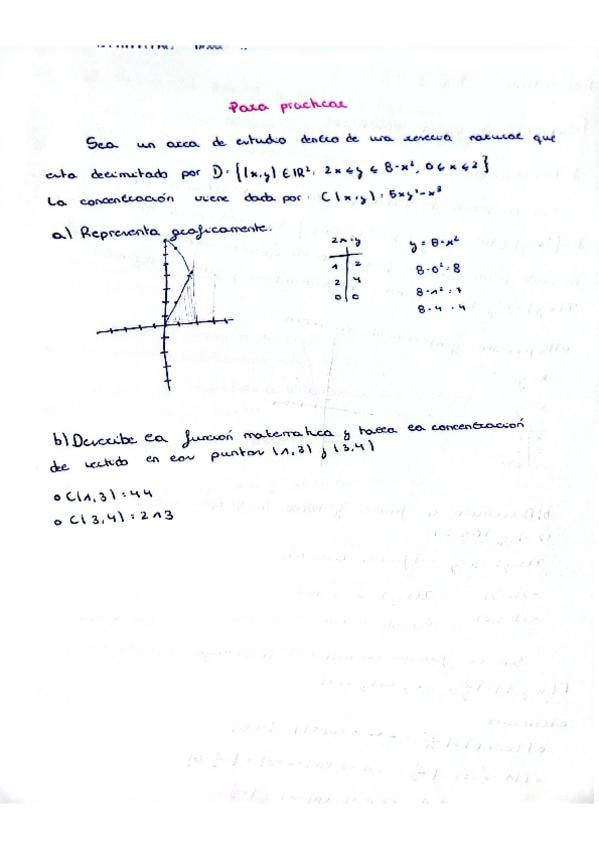 Para practicar
Sea un area de estudio dentro de una reserva natural que
esta delimitado por D = {(x,y) ∈ IR², 2x ≤ y ≤ 8-x², 0 ≤ x ≤ 2}
La concentración viene dada por: C(x,y) = 5xy²-x³
a) Representa graficamente.
2x=y
1 2
2 4
0 0
y = 8-x²
8-0² = 8
8-1² = 7
8-4 = 4
b) Describe la función matematica y halla la concentración
de vertido en los puntos (1,3) y (3,4)
C(1,3) = 44
C(3,4) = 213